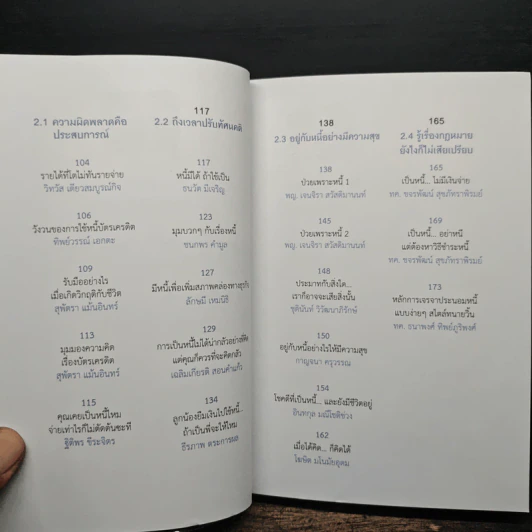 2.1 ความผิดพลาดคือ
ประสบการณ์
104
รายได้ที่โตไม่ทันรายจ่าย
วิทวัส เตียวสมบูรณ์กิจ
106
วังวนของการใช้หนี้บัตรเครดิต
ทิพย์วรรณ์ เอกตะ
109
รับมืออย่างไร
เมื่อเกิดวิกฤติกับชีวิต
สุพัตรา แม้นอินทร์
113
มุมมองความคิด
เรื่องบัตรเครดิต
สุพัตรา แม้นอินทร์
115
คุณเคยเป็นหนี้ไหม
จ่ายเท่าไรก็ไม่ตัดต้นซะที
ฐิติพร ชีระจิตร
117
2.2 ถึงเวลาปรับทัศนคติ
117
หนี้มีได้ ถ้าใช้เป็น
ธนวัต มีเจริญ
123
มุมบวกๆ กับเรื่องหนี้
ธนกพร คำมูล
127
มีหนี้เพื่อเพิ่มสภาพคล่องทางธุรกิจ
ลักษมี เทมนิธิ
129
การเป็นหนี้ไม่ได้น่ากลัวอย่างที่คิด
แต่คุณก็ควรที่จะคิดกลัว
เฉลิมเกียรติ สอนคำแก้ว
134
ลูกน้องยืมเงินไปใช้หนี้...
ถ้าเป็นพี่จะให้ไหม
ธีรภาพ
138
2.3 อยู่กับหนี้อย่างมีความสุข
138
ป่วยเพราะหนี้ 1
พญ. เจนจิรา สวัสดิมานนท์
145
ป่วยเพราะหนี้ 2
พญ. เจนจิรา สวัสดิมานนท์
148
ประมาทกับสิ่งใด...
เราก็อาจจะเสียสิ่งนั้น
ชุตินันท์ วิวัฒนาภิรักษ์
150
อยู่กับหนี้อย่างไรให้มีความสุข
กาญจนา ครุวรรณ
154
โชคดีที่เป็นหนี้... และยังมีชีวิตอยู่
อินทกุล มณีโชติช่วง
162
เมื่อได้คิด... ก็คิดได้
โฆษิต มโนมัยอุดม
165
2.4 รู้เรื่องกฎหมาย
ยังไงก็ไม่เสียเปรียบ
165
เป็นหนี้... ไม่มีเงินจ่าย
ทศ. ขจรพัฒน์ สุขภัทราพิรมย์
169
เป็นหนี้... อย่าหนี
แต่ต้องหาวิธีชำระหนี้
ทศ. ขจรพัฒน์ สุขภัทราพิรมย์
173
หลักการเจรจาประนอมหนี้
แบบง่ายๆ สไตล์ทนายวิ้น
ทศ. ธนาพงศ์ ทิพย์ภูริพงศ์